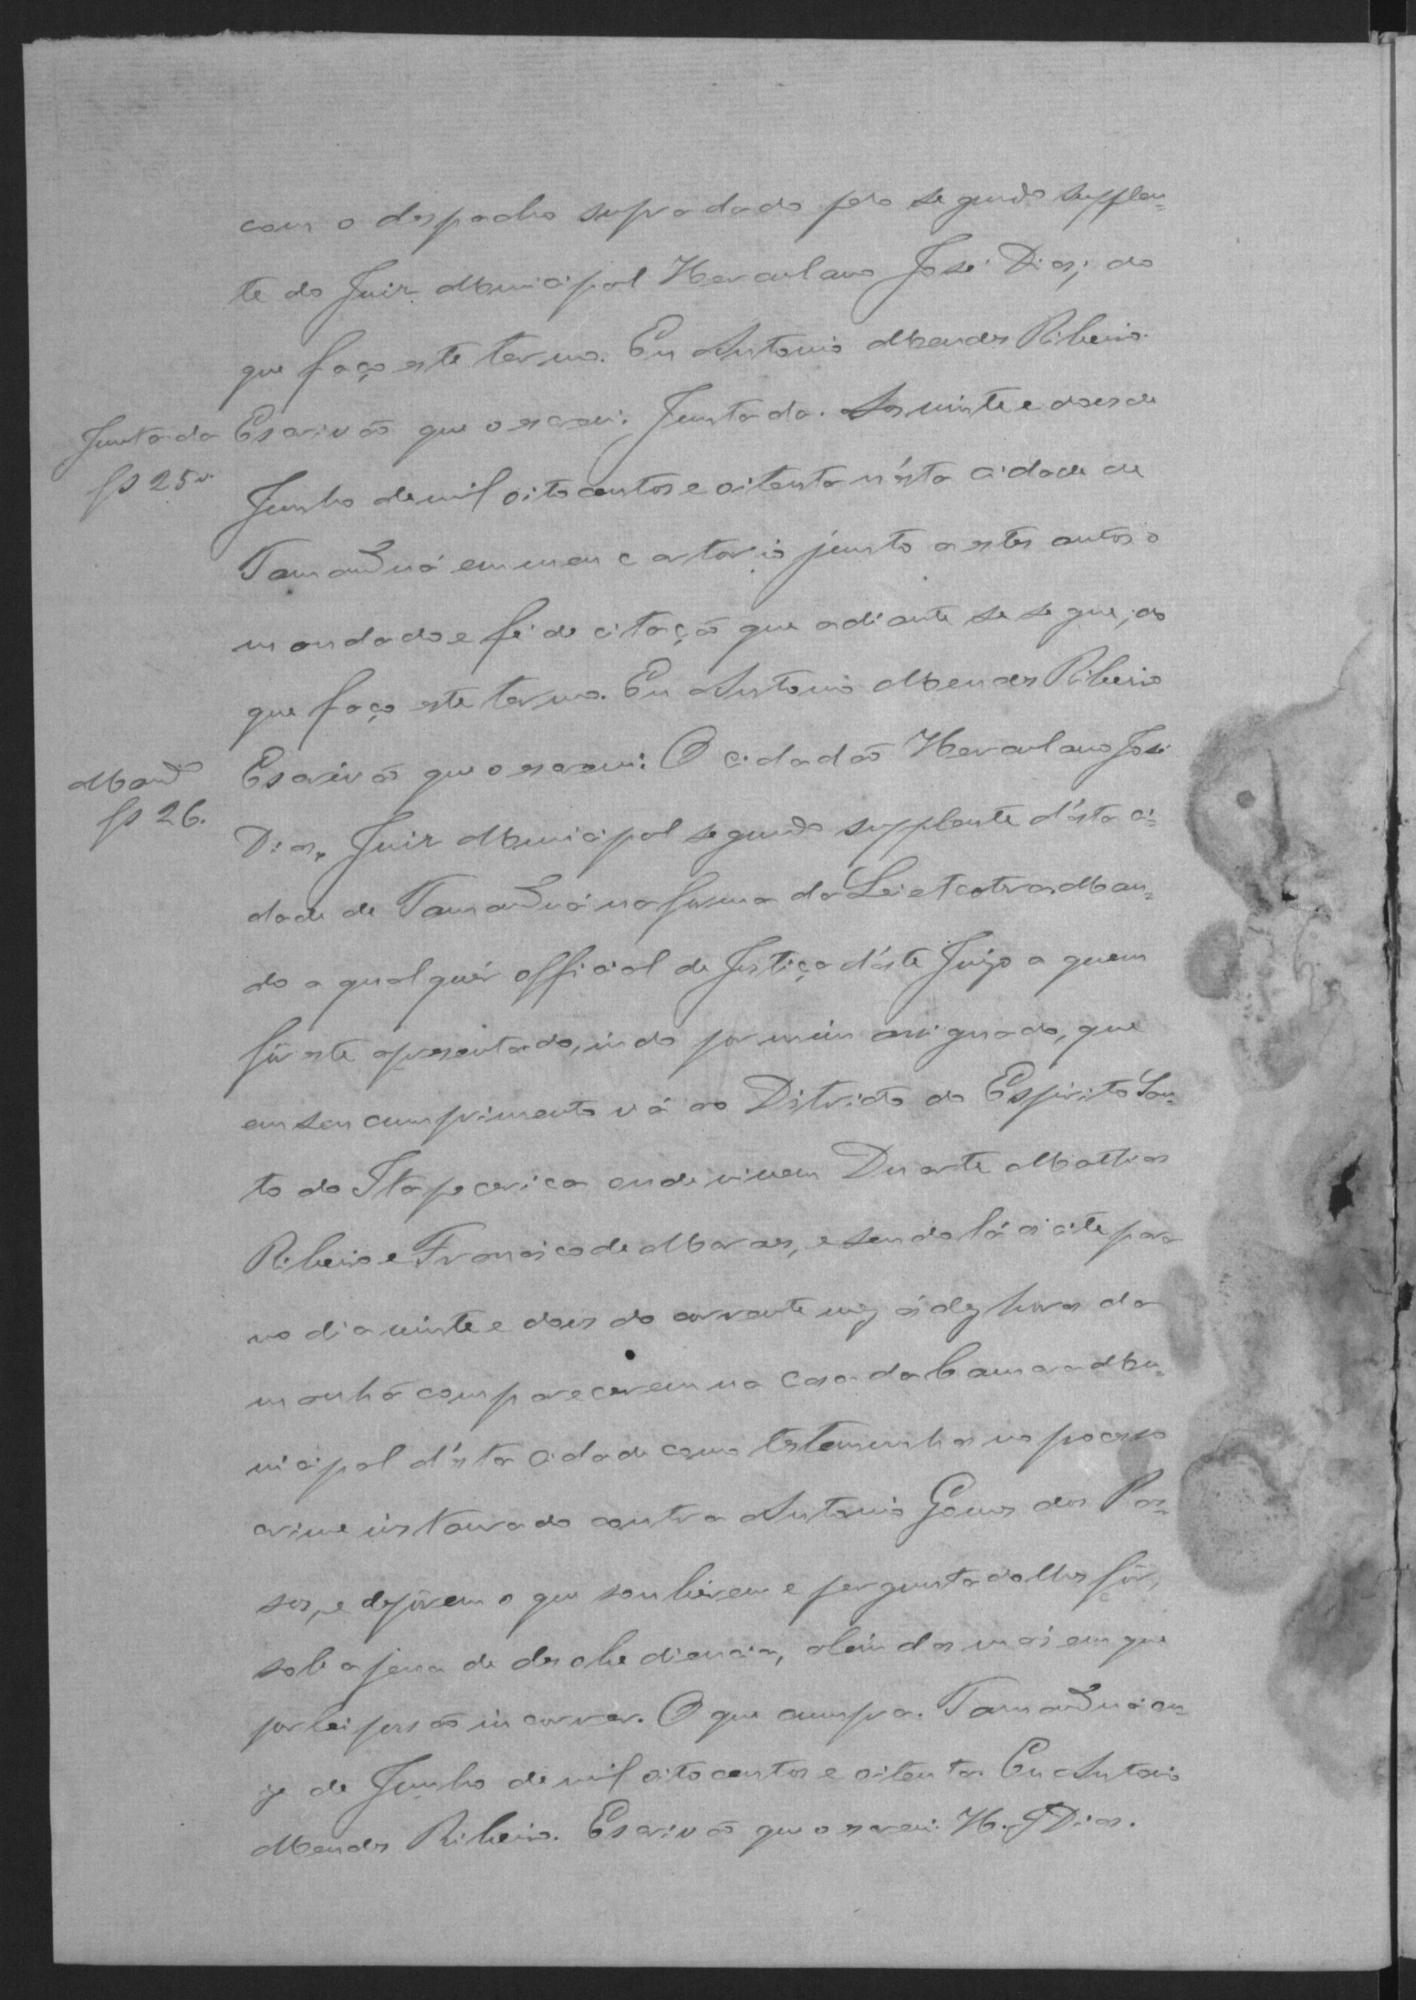 com o despacho supra dado pelo segundo supplen=
te do Juiz Municipal Herculano José Dias; do
que faço este termo. Eu Antonio Mendes Ribeiro.
Juntada
fs 25v.
Escrivão que o escrevi. Juntada. Aos vinte e dois de
Junho de mil oitocentos e oitenta n'ésta cidade de
Tamanduá em meu cartorio junto a estes autos o
mandado e fé de citação que adiante se segue; do
que faço este termo. Eu Antonio Mendes Ribeiro
Mand.o
fs 26.
Escrivão que o escrevi. O cidadão Herculano José
Dias, Juiz Municipal segundo supplente d'ésta ci=
dade de Tamanduá na forma da Lei etcetras Man=
do a qualquér official de Justiça d'éste Juizo a quem
fôr este apresentado, indo por mim assignado, que
em seu cumprimento vá ao Ditricto do Espirito San=
to do Itapecerica onde vivem Duarte Mathias
Ribeiro e Francisco de Moraes, e sendo lá os cite para
no dia vinte e dois do corrente mez ás dez horas da
manhã comparecerem na casa da Camara Mu=
nicipal d'ésta cidade como testemunhas no pocesso
crime instaurado contra Antonio Gomes dos Pas=
sos, e depôrem o que soubérem e perguntado lhes fôr,
sob a pena de desobediencia, além das mais em que
por lei possão incorrer. O que cumpra. Tamanduá on=
ze de Junho de mil oitocentos e oitenta. Eu Antonio
Mendes Ribeiro. Escrivão que o escrevi. H. J Dias.